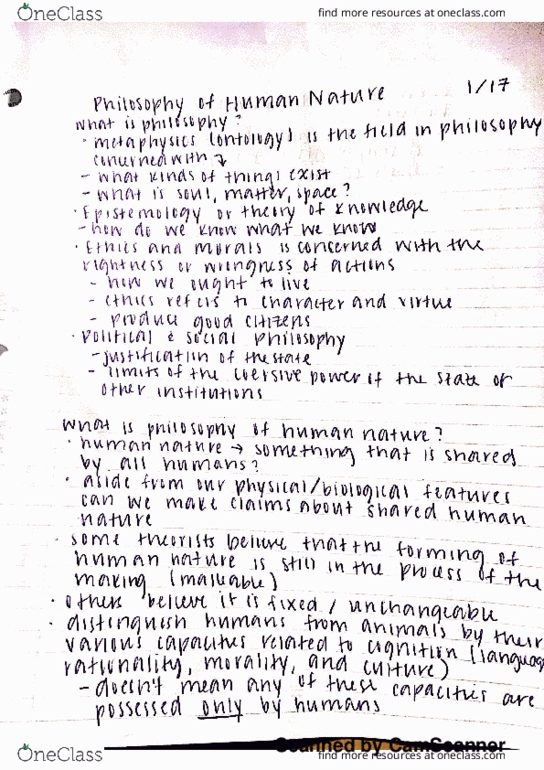 OneClass
find more resources at oneclass.com
Philosophy of Human Nature 1/17
What is philosophy?
· metaphysics (ontology) is the field in philosophy
concerned with ↴
- what kinds of things exist
- what is soul, matter, space?
· Epistemology or theory of knowledge
- how do we know what we know
· Ethics and morals is concerned with the
rightness or wrongness of actions
- how we ought to live
- ethics refers to character and virtue
- produce good citizens
· Political & social philosophy
- justification of the state
- limits of the coersive power of the state or
other institutions
What is philosophy of human nature?
· human nature → something that is shared
by all humans?
· aside from our physical/biological features
can we make claims about shared human
nature
· some theorists believe that the forming of
human nature is still in the process of the
making (malleable)
· others believe it is fixed / unchangeable
· distinguish humans from animals by their
various capacities related to cognition (languag
rationality, morality, and culture)
- doesn't mean any of these capacities are
possessed only by humans
Scanned by CamScanner
OneClass
find more resources at oneclass.com